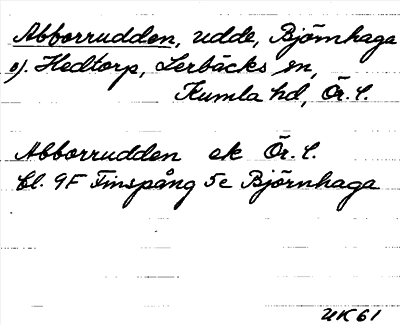 Abborrudden, udde, Björnhaga
o). Hedtorp, Lerbäcks sn,
Kumla hd, Ör. l.
Abborrudden ek Ör. l.
bl. 9F Finspång 5e Björnhaga
UK 61